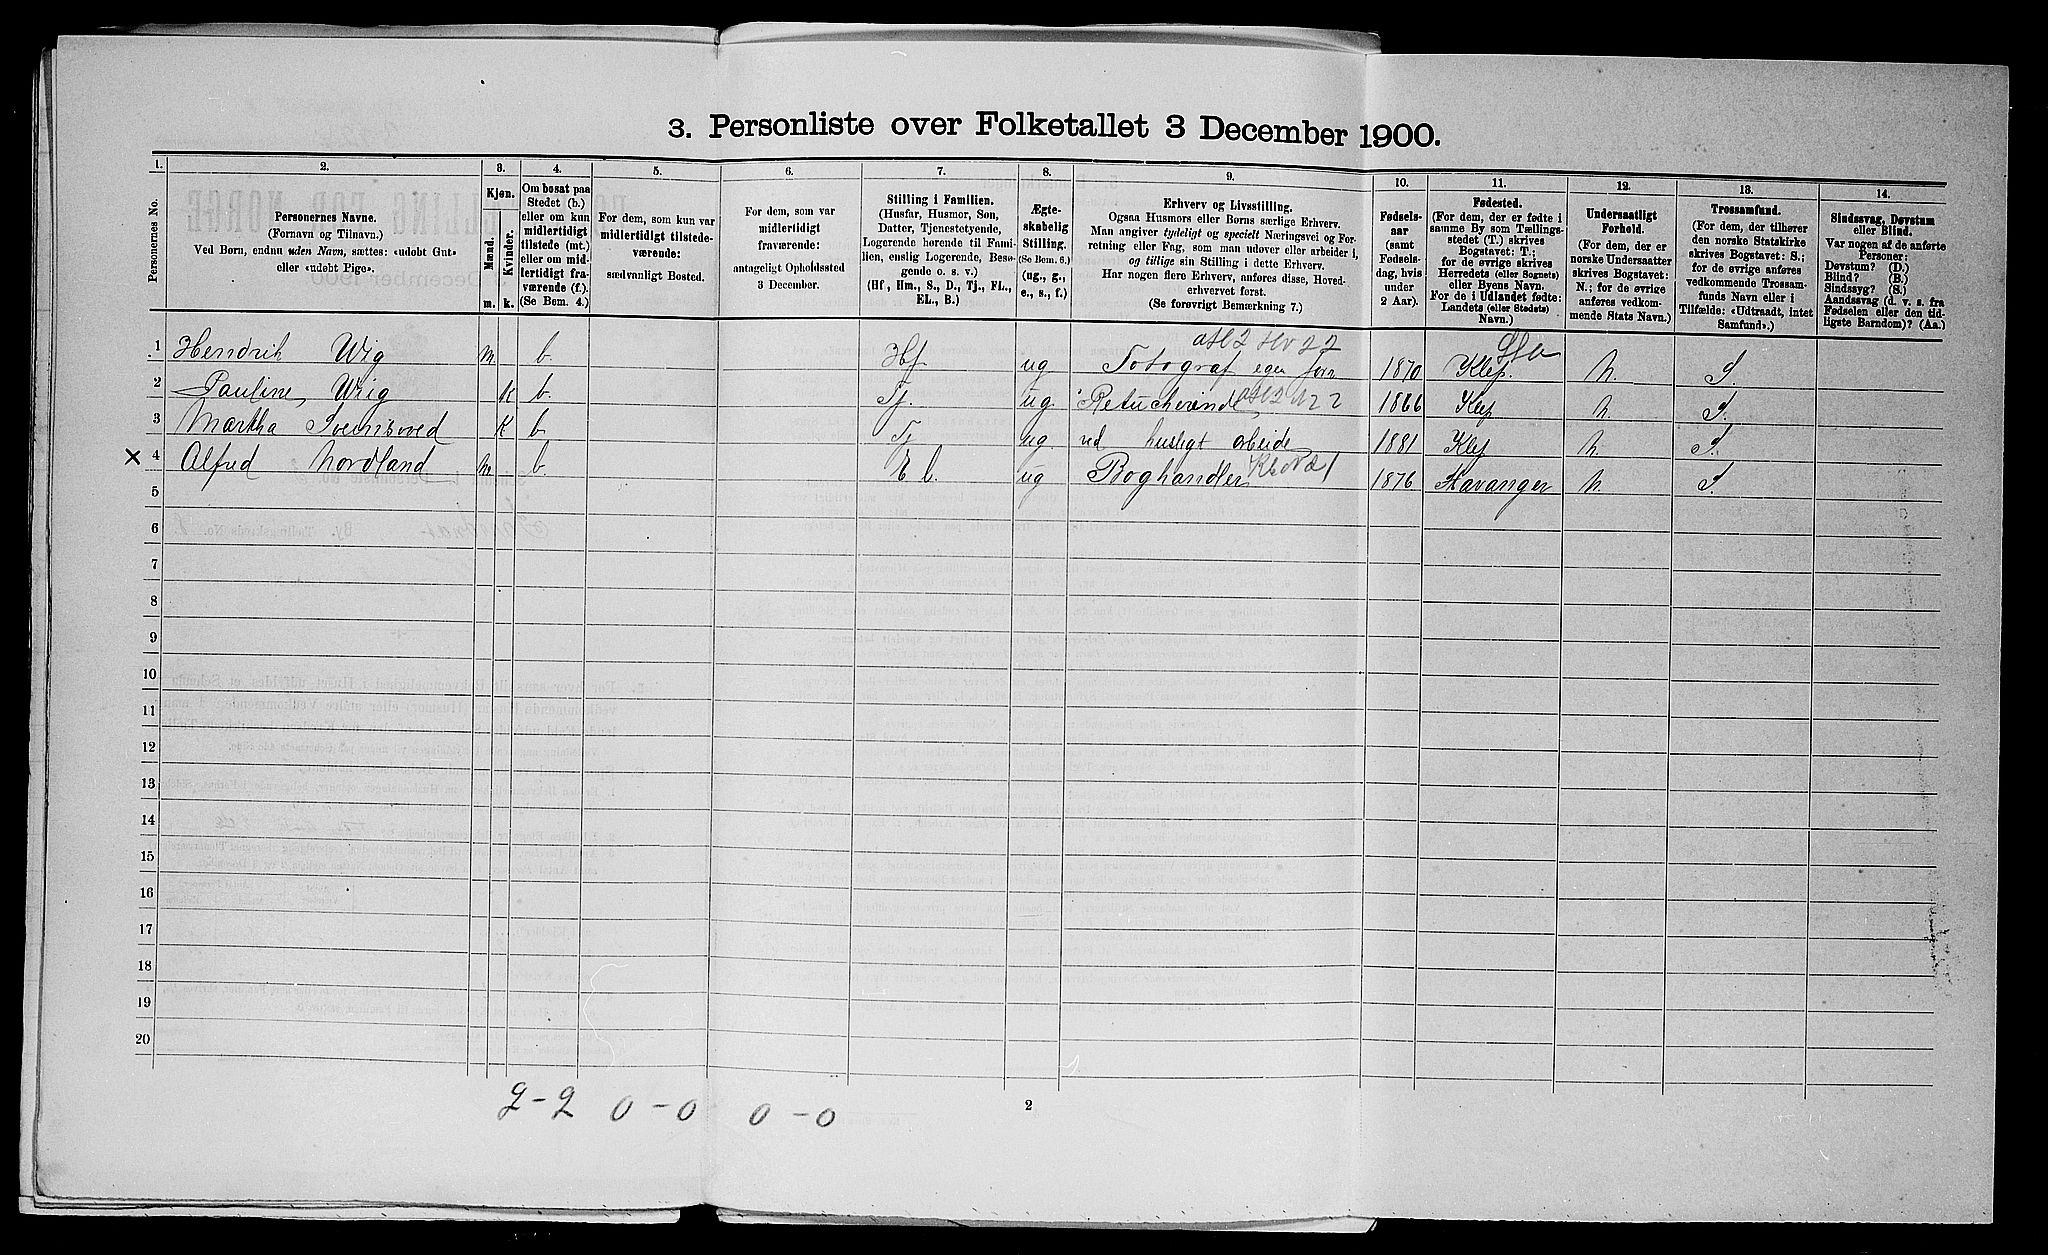 3. Personliste over Folketallet 3 December 1900.
1.
Personernes No.
2.
Personernes Navne.
(Fornavn og Tilnavn.)
Ved Børn, endnu uden Navn, sættes: «udøbt Gut»
eller «udøbt Pige».
3.
Kjøn.
Mænd.
Kvinder.
m.
k.
4.
Om bosat paa
Stedet (b.)
eller om kun
midlertidigt
tilstede (mt.)
eller om mid-
lertidigt fra-
værende (f.).
(Se Bem. 4.)
5.
For dem, som kun var
midlertidigt tilstede-
værende:
sædvanligt Bosted.
6.
For dem, som var
midlertidigt
fraværende:
antageligt Opholdssted
3 December.
7.
Stilling i Familien.
(Husfar, Husmor, Søn,
Datter, Tjenestetyende,
Logerende hørende til Fami-
lien, enslig Logerende, Besø-
gende o. s. v.)
(Hf, Hm., S., D., Tj., FL.,
EL., B.)
8.
Ægte-
skabelig
Stilling.
(Se Bem. 6.)
(ug., g.,
e., s., f.)
9.
Erhverv og Livsstilling.
Ogsaa Husmors eller Børns særlige Erhverv.
Man angiver tydeligt og specielt Næringsvei og For-
retning eller Fag, som man udøver eller arbeider i,
og tillige sin Stilling i dette Erhverv.
Har nogen flere Erhverv, anføres disse, Hoved-
erhvervet først.
(Se forøvrigt Bemærkning 7.)
10.
Fødsels-
aar
(samt
Fødsels-
dag, hvis
under
2 Aar).
11.
Fødested.
(For dem, der er fødte i
samme By som Tællings-
stedet (T.) skrives
Bogstavet: T;
for de øvrige skrives
Herredets (eller Sognets)
eller Byens Navn.
For de i Udlandet fødte:
Landets (eller Stedets)
Navn.)
12.
Undersaatligt
Forhold.
(For dem, der er
norske Undersaatter
skrives Bogstavet:
N.; for de øvrige
anføres vedkom-
mende Stats Navn.)
13.
Trossamfund.
(For dem, der tilhører
den norske Statskirke
skrives Bogstavet: S.;
for de øvrige anføres
vedkommende Trossam-
funds Navn eller i
Tilfælde: «Udtraadt, intet
Samfund».)
14.
Sindssvag, Døvstum
eller Blind.
Var nogen af de anførte
Personer:
Døvstum? (D.)
Blind? (B.)
Sindssyg? (S.)
Aandssvag (d. v. s. fra
Fødselen eller den tid-
ligste Barndom)? (Aa.)
1 Hendrik Wig m. b. Hf. ug Fotograf egen 1870 Klep. N. S.
2 Pauline Wiig K b. Tj. ug. Retucherinde 1866 Klep N. S.
3 Martha Sveinsved K b Tj ug. ved husligt arbeide 1881 Klep N. S.
× 4 Alfred Nordland m. b. El. ug Boghandler 1876 Stavanger N. S.
5
6
7
8
9
10
11
12
13
14
15
16
17
18
19
20
2 - 2 0 - 0 0 - 0
2